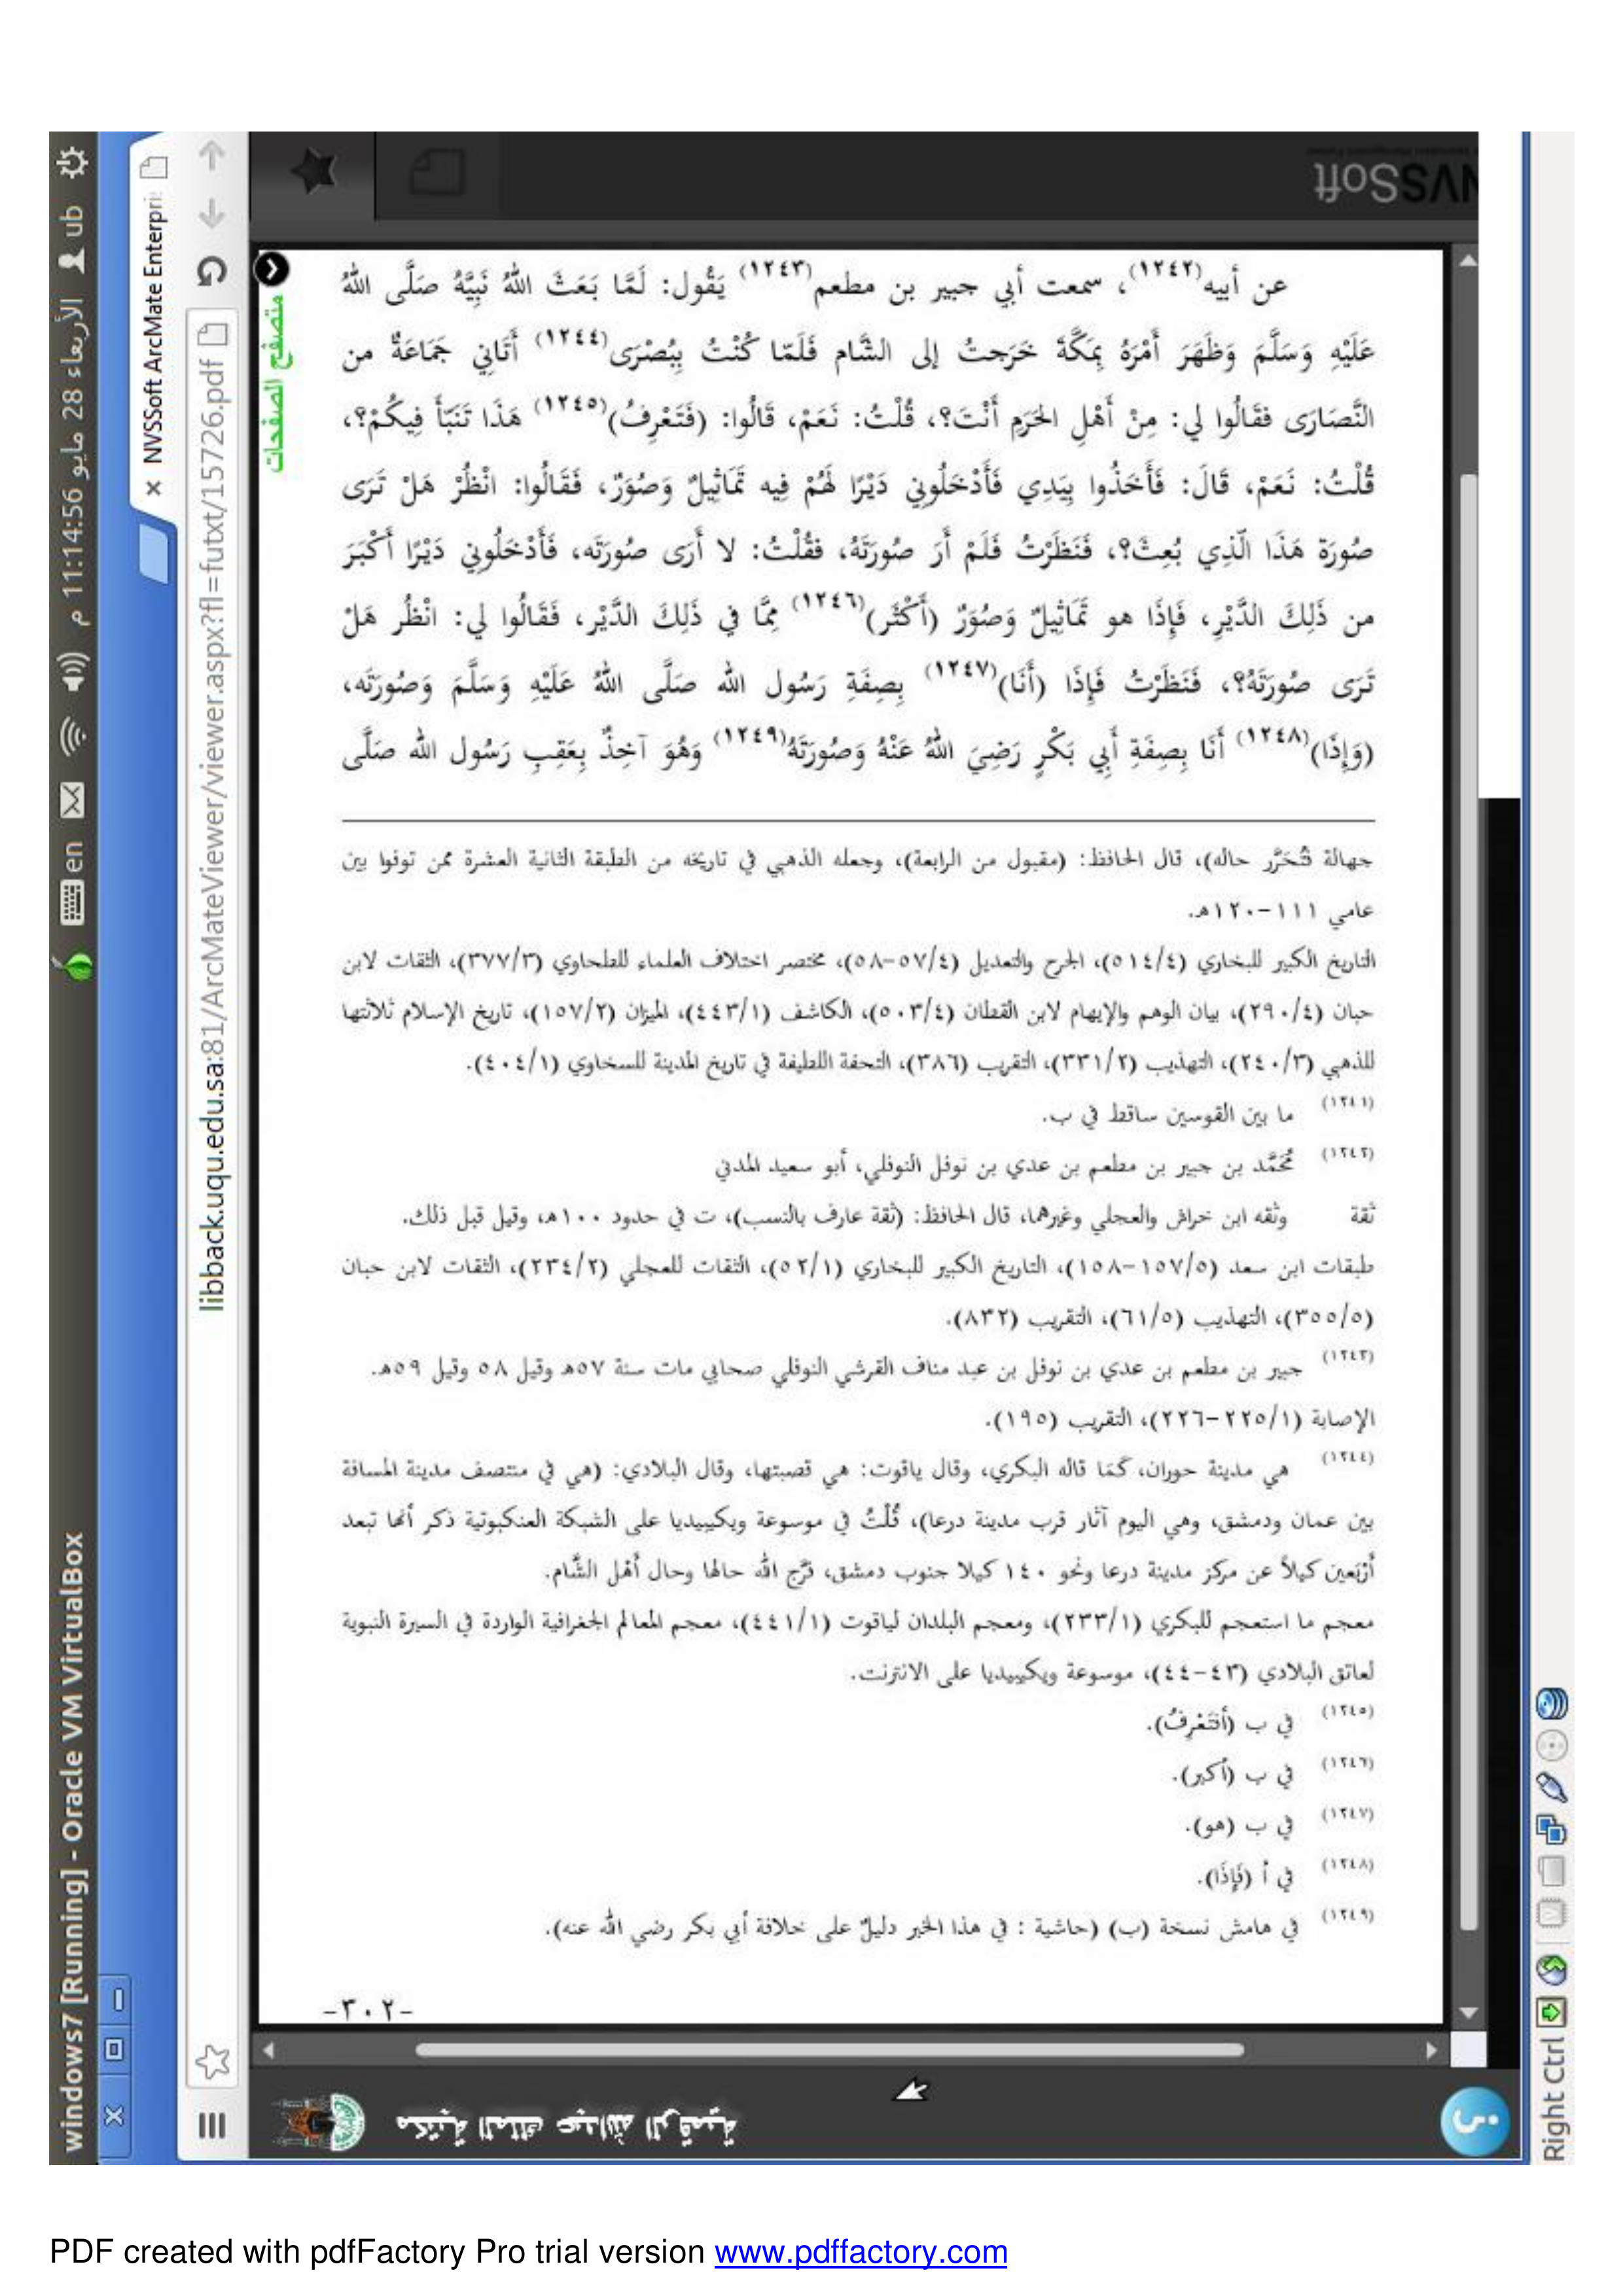 windows7 [Running] - Oracle VM VirtualBox
en
الأربعاء 28 مايو 11:14:56 م
ub
NVSSoft ArcMate Enterpri
libback.uqu.edu.sa:81/ArcMateViewer/viewer.aspx?fl=futxt/15726.pdf
NVSSoft
متصفح الصفحات
عن أبيه(١٢٤٢)، سمعت أبي جبير بن مطعم(١٢٤٣) يَقُول: لَمَّا بَعَثَ اللهُ نَبِيَّهُ صَلَّى اللهُ
عَلَيْهِ وَسَلَّمَ وَظَهَرَ أَمْرُهُ بِمَكَّةَ خَرَجتُ إلى الشَّام فَلَمّا كُنْتُ بِبُصْرَى(١٢٤٤) أَتَانِي جَمَاعَةٌ من
النَّصَارَى فقَالُوا لي: مِنْ أَهْلِ الحَرَمِ أَنْتَ؟، قُلْتُ: نَعَمْ، قَالُوا: (فَتَعْرِفُ)(١٢٤٥) هَذَا تَنَبَّأَ فِيكُمْ؟،
قُلْتُ: نَعَمْ، قَالَ: فَأَخَذُوا بِيَدِي فَأَدْخَلُونِي دَيْرًا لَهُمْ فِيه تَمَاثِيلٌ وَصُوَرٌ، فَقَالُوا: انْظُرْ هَلْ تَرَى
صُورَة هَذَا الّذِي بُعِثَ؟، فَنَظَرْتُ فَلَمْ أَرَ صُورَتَهُ، فقُلْتُ: لا أَرَى صُورَتَه، فَأَدْخَلُونِي دَيْرًا أَكْبَرَ
من ذَلِكَ الدَّيْرِ، فَإِذَا هو تَمَاثِيلٌ وَصُوَرٌ (أَكْثَر)(١٢٤٦) مِمَّا في ذَلِكَ الدَّيْر، فَقَالُوا لي: انْظُر هَلْ
تَرَى صُورَتَهُ؟، فَنَظَرْتُ فَإِذَا (أَنَا)(١٢٤٧) بِصِفَةِ رَسُول الله صَلَّى اللهُ عَلَيْهِ وَسَلَّمَ وَصُورَتَه،
(وَإِذَا)(١٢٤٨) أَنَا بِصِفَةِ أَبِي بَكْرٍ رَضِيَ اللهُ عَنْهُ وَصُورَتَهُ(١٢٤٩) وَهُوَ آخِذٌ بِعَقِبِ رَسُول الله صَلَّى
جهالة تُحَرَّر حاله)، قال الحافظ: (مقبول من الرابعة)، وجعله الذهبي في تاريخه من الطبقة الثانية العشرة ممن توفوا بين
عامي ١١١-١٢٠هـ.
التاريخ الكبير للبخاري (٥١٤/٤)، الجرح والتعديل (٥٧/٤-٥٨)، مختصر اختلاف العلماء للطحاوي (٣٧٧/٣)، الثقات لابن
حبان (٢٩٠/٤)، بيان الوهم والإيهام لابن القطان (٥٠٣/٤)، الكاشف (٤٤٣/١)، الميزان (١٥٧/٢)، تاريخ الإسلام ثلاثتها
للذهبي (٢٤٠/٣)، التهذيب (٣٣١/٢)، التقريب (٣٨٦)، التحفة اللطيفة في تاريخ المدينة للسخاوي (٤٠٤/١).
(١٢٤١) ما بين القوسين ساقط في ب.
(١٢٤٢) مُحَمَّد بن جبير بن مطعم بن عدي بن نوفل النوفلي، أبو سعيد المدني
ثقة وثقه ابن خراش والعجلي وغيرهما، قال الحافظ: (ثقة عارف بالنسب)، ت في حدود ١٠٠هـ، وقيل قبل ذلك.
طبقات ابن سعد (١٥٧/٥-١٥٨)، التاريخ الكبير للبخاري (٥٢/١)، الثقات للعجلي (٢٣٤/٢)، الثقات لابن حبان
(٣٥٥/٥)، التهذيب (٦١/٥)، التقريب (٨٣٢).
(١٢٤٣) جبير بن مطعم بن عدي بن نوفل بن عبد مناف القرشي النوفلي صحابي مات سنة ٥٧هـ وقيل ٥٨ وقيل ٥٩هـ.
الإصابة (٢٢٥/١-٢٢٦)، التقريب (١٩٥).
(١٢٤٤) هي مدينة حوران، كَمَا قاله البكري، وقال ياقوت: هي قصبتها، وقال البلادي: (هي في منتصف مدينة المسافة
بين عمان ودمشق، وهي اليوم آثار قرب مدينة درعا)، قُلْتُ في موسوعة ويكيبيديا على الشبكة العنكبوتية ذكر أنها تبعد
أَرْبَعين كيلاً عن مركز مدينة درعا ونحو ١٤٠ كيلا جنوب دمشق، فرّج الله حالها وحال أَهْل الشَّام.
معجم ما استعجم للبكري (٢٣٣/١)، ومعجم البلدان لياقوت (٤٤١/١)، معجم المعالم الجغرافية الواردة في السيرة النبوية
لعاتق البلادي (٤٣-٤٤)، موسوعة ويكيبيديا على الانترنت.
(١٢٤٥) في ب (أفتَعْرِفُ).
(١٢٤٦) في ب (أكبر).
(١٢٤٧) في ب (هو).
(١٢٤٨) في أ (فَإِذَا).
(١٢٤٩) في هامش نسخة (ب) (حاشية : في هذا الخبر دليلٌ على خلافة أبي بكر رضي الله عنه).
-٣٠٢-
مكتبة الملك عبدالله الرقمية
Right Ctrl
PDF created with pdfFactory Pro trial version www.pdffactory.com